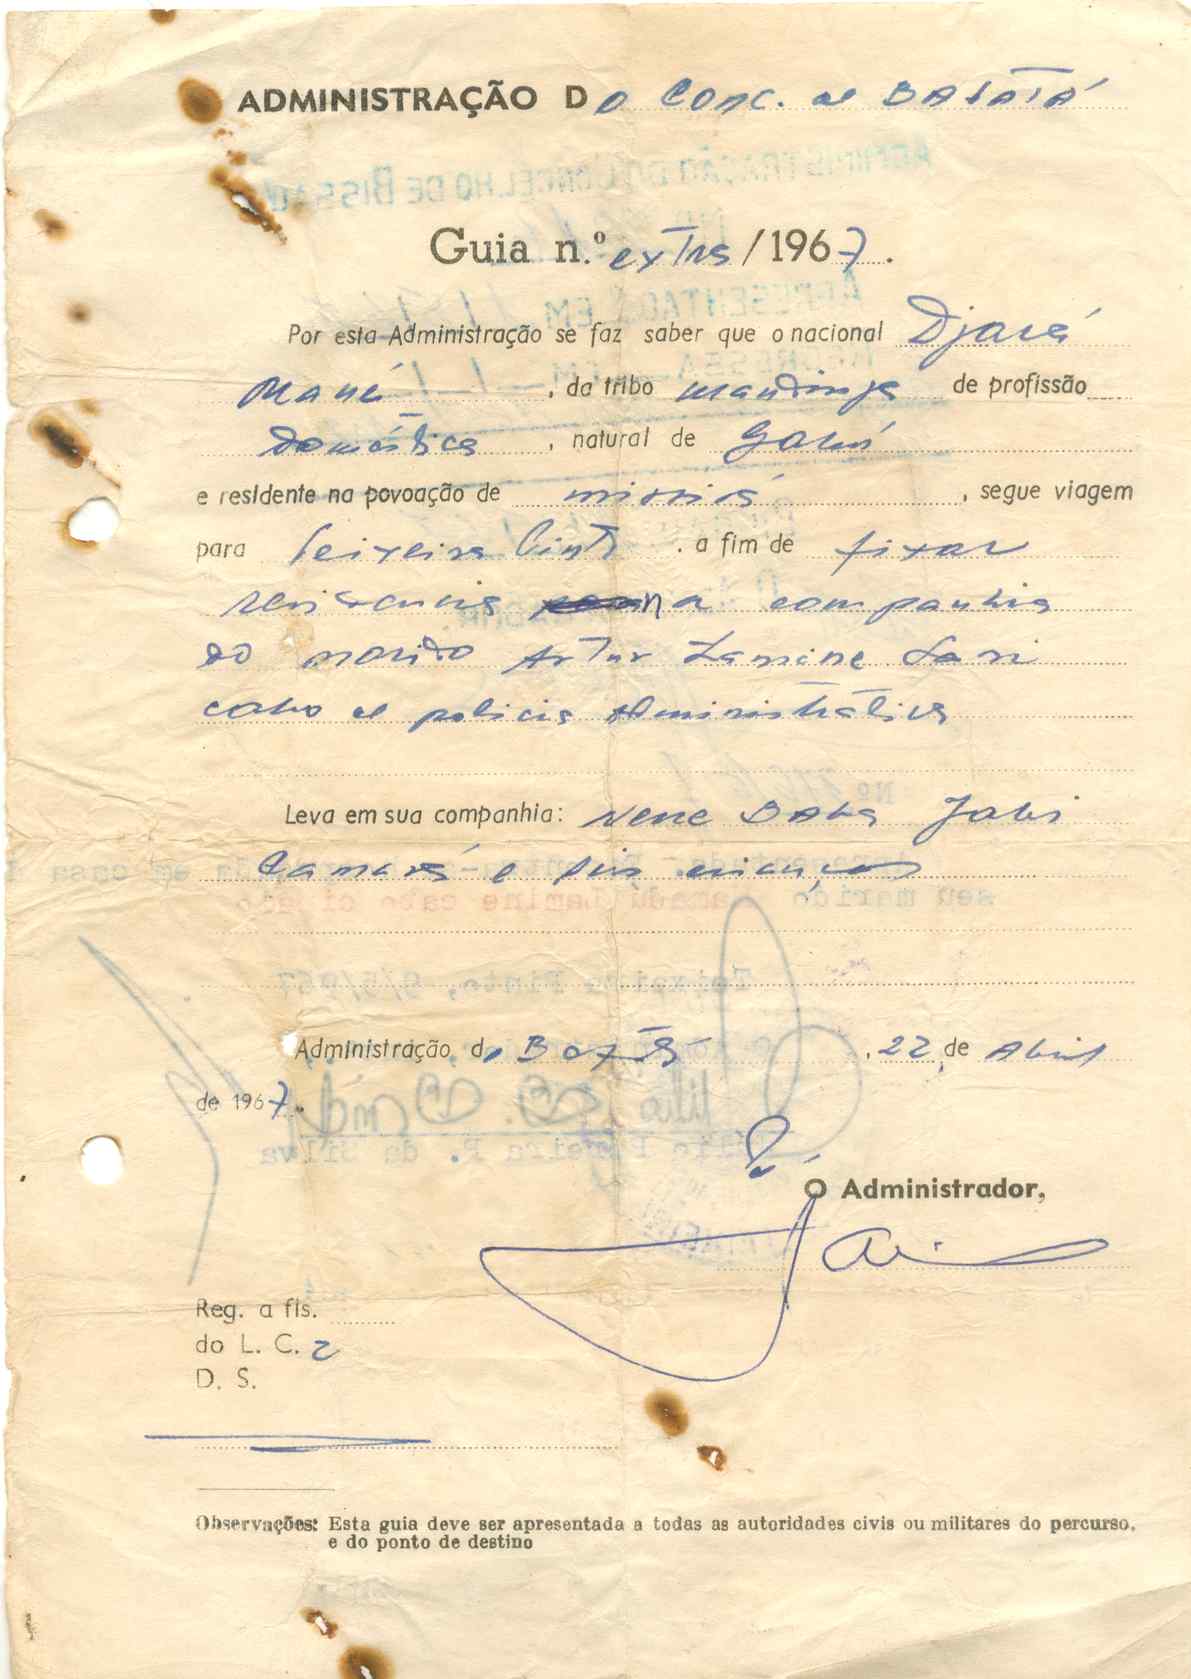 ADMINISTRAÇÃO Do Conc. de BAFATÁ
Guia n.º extra /1967.
Por esta Administração se faz saber que o nacional Djará
Mané, da tribo mandinga de profissão
doméstica, natural de Gabú
e residente na povoação de missirá, segue viagem
para Teixeira Pinto. a fim de fixar
residencia na companhia
do marido Artur Lamine Sani
cabo de policia Administrativa
Leva em sua companhia: Nene Baba Jabi
Camará e dois crianças
Administração do Bafatá, 22 de Abril
de 1967.
O Administrador,
Reg. a fls.
do L. C. 2
D. S.
Observações: Esta guia deve ser apresentada a todas as autoridades civis ou militares do percurso,
e do ponto de destino